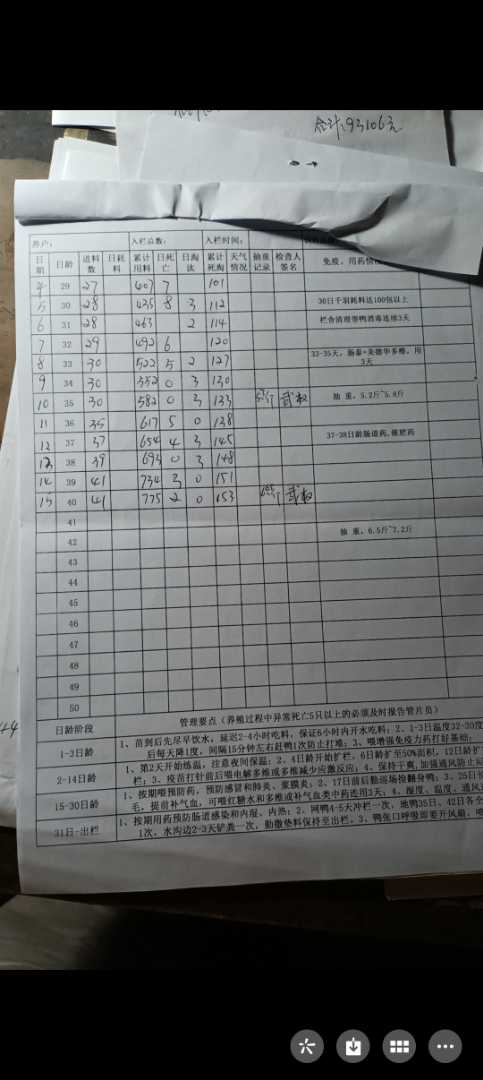 合计:93106元
养户: 入栏总数: 入栏时间:
日期 日龄 进料数 日耗料 累计用料 日死亡 日淘汰 累计死淘 天气情况 抽重记录 检查人签名 免疫、用药情
4 29 27 407 7 101
5 30 28 435 8 3 112 30日千羽耗料达100包以上
6 31 28 463 2 114 栏舍清理带鸭消毒连续3天
7 32 29 492 6 120
8 33 30 522 5 2 127 33-35天，肠泰+美德华多维，用3天
9 34 30 552 0 3 130
10 35 30 582 0 3 133 抽 重，5.2斤~5.8斤
11 36 35 617 5 0 138
12 37 37 654 4 3 145 37-38日龄肠道药、催肥药
13 38 39 693 0 3 148
14 39 41 734 3 0 151
15 40 41 775 2 0 153
41
42 抽 重，6.5斤~7.2斤
43
44
45
46
47
48
49
50
日龄阶段 管理要点（养殖过程中异常死亡5只以上的必须及时报告管片员）
1-3日龄 1、苗到后先尽早饮水，延迟2-4小时吃料，保证6小时内开水吃料；2、1-3日温度32-30度
后每天降1度，间隔15分钟左右赶鸭1次防止打堆；3、喂增强免疫力药打好基础；
2-14日龄 1、第2天开始炼温，注意夜间保温；2、4日龄开始扩栏，6日龄扩至50%面积，12日龄扩
栏；3、疫苗打针前后喂电解多维或多维减少应激反应；4、保持干爽，加强通风防止
15-30日龄 1、按期喂预防药，预防感冒和肺炎、浆膜炎；2、17日前后勤巡场捡翻身鸭；3、25日
毛，提前补气血，可喂红糖水和多维或补气血类中药连用3天；4、湿度、温度、通风
31日-出栏 1、按期用药预防肠道感染和内湿、内热；2、网鸭4-5天冲栏一次，地鸭35日、42日各全
1次，水沟边2-3天铲粪一次，勤撒垫料保持至出栏。3、鸭张口呼吸即要开风扇、